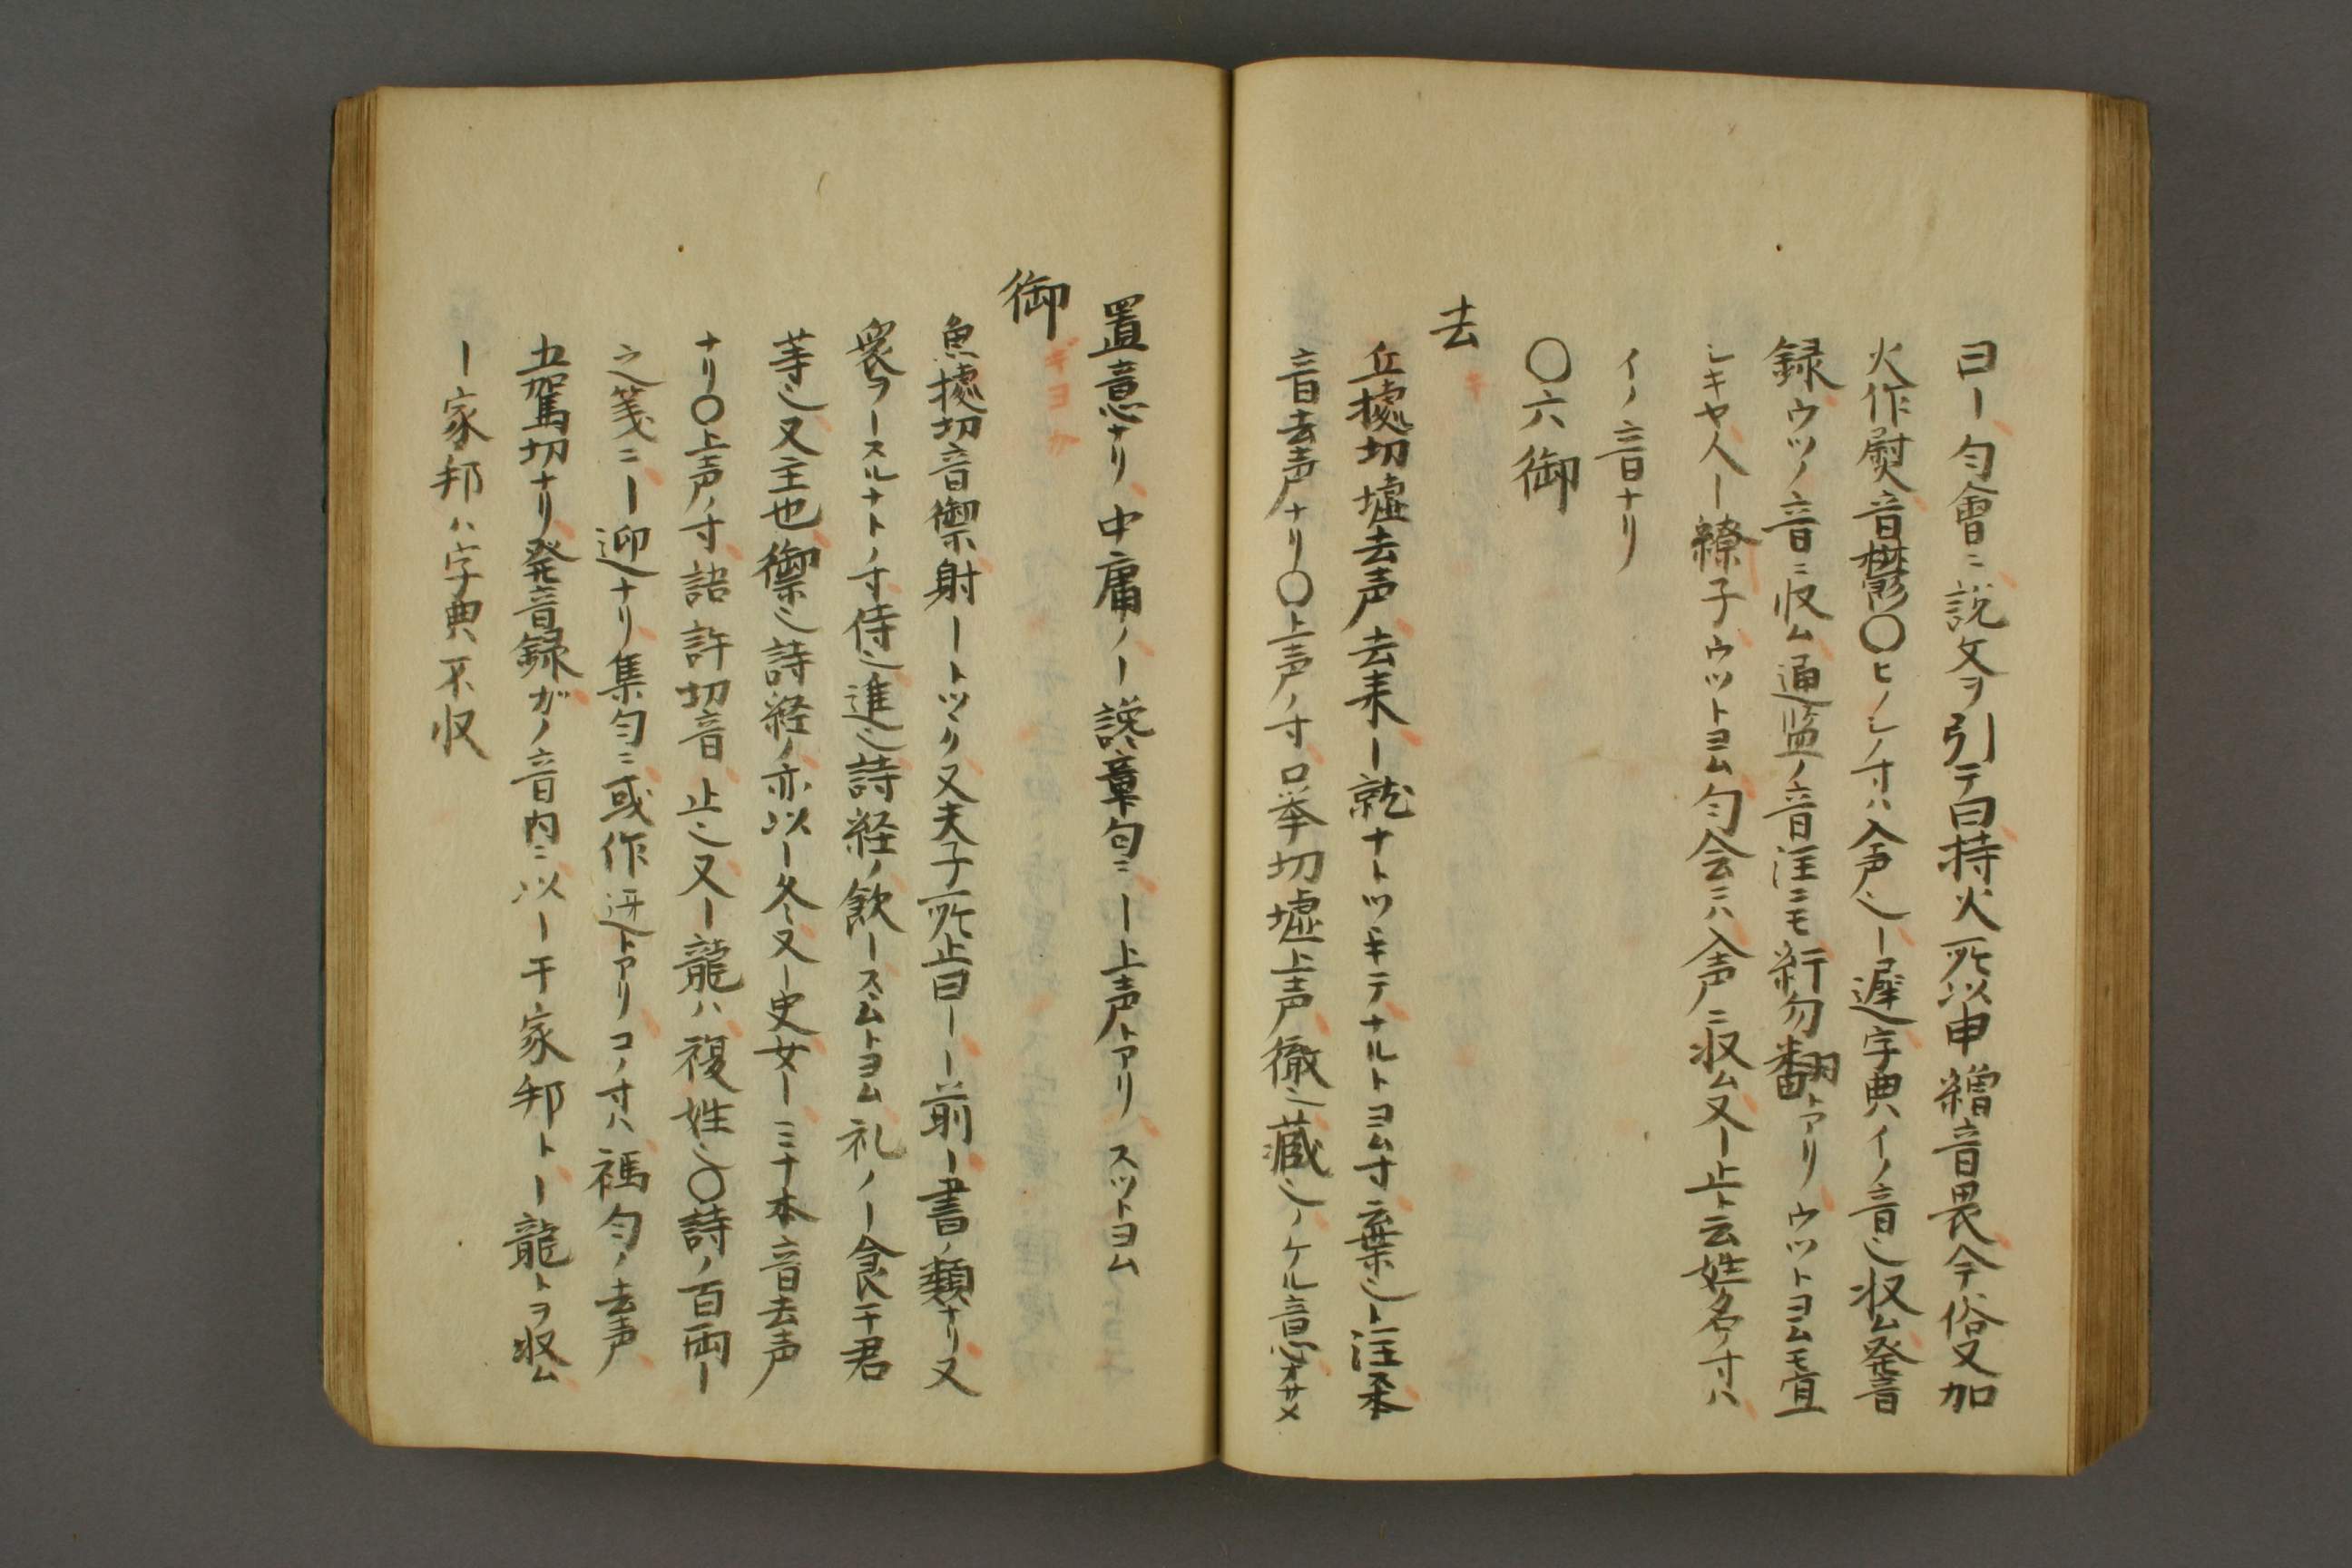 曰ー匀會ニ説文ヲ引テ曰持火所以申繒音畏今俗又加
火作熨音欝〇ヒノシノ寸ハ入声也ー遲字典ハイノ音ニ收ム発音
録ウツノ音ニ收ム通鑑ノ音注ニモ紆勿翻トアリウツトヨムモ宜
シキヤ人ー繚子ウツトヨム匀会ニハ入声ニ收ム又ー止ト云姓名ノ寸ハ
イノ音ナリ
〇六御
去
キ
丘據切墟去声去来ー就ナトツヾキテナルトヨム寸棄也ト注ス本
音去声ナリ〇上声ノ寸口举切墟上声徹也蔵也ノケル意オサメ
置意ナリ中庸ノー讒章句ニー上声トアリスツトヨム
御
ギヨ カ
魚據切音禦射ートツヾク又夫子所止曰ーー前ー書ノ類ナリ又
衆ヲースルナトノ寸侍也進也詩経ノ飲ースヽムトヨム礼ノー食于君
等也又主也禦也詩経ノ亦以ー冬又ー史女ーミナ本音去声
ナリ〇上声ノ寸語許切音 止也又ー龍ハ複姓也〇詩ノ百両ー
之箋ニー迎ナリ集匀ニ或作迓トアリコノ寸ハ禡匀ノ去声
五駕切ナリ発音録ガノ音内ニ以ー于家邦トー龍トヲ收ム
ー家邦ハ字典不收